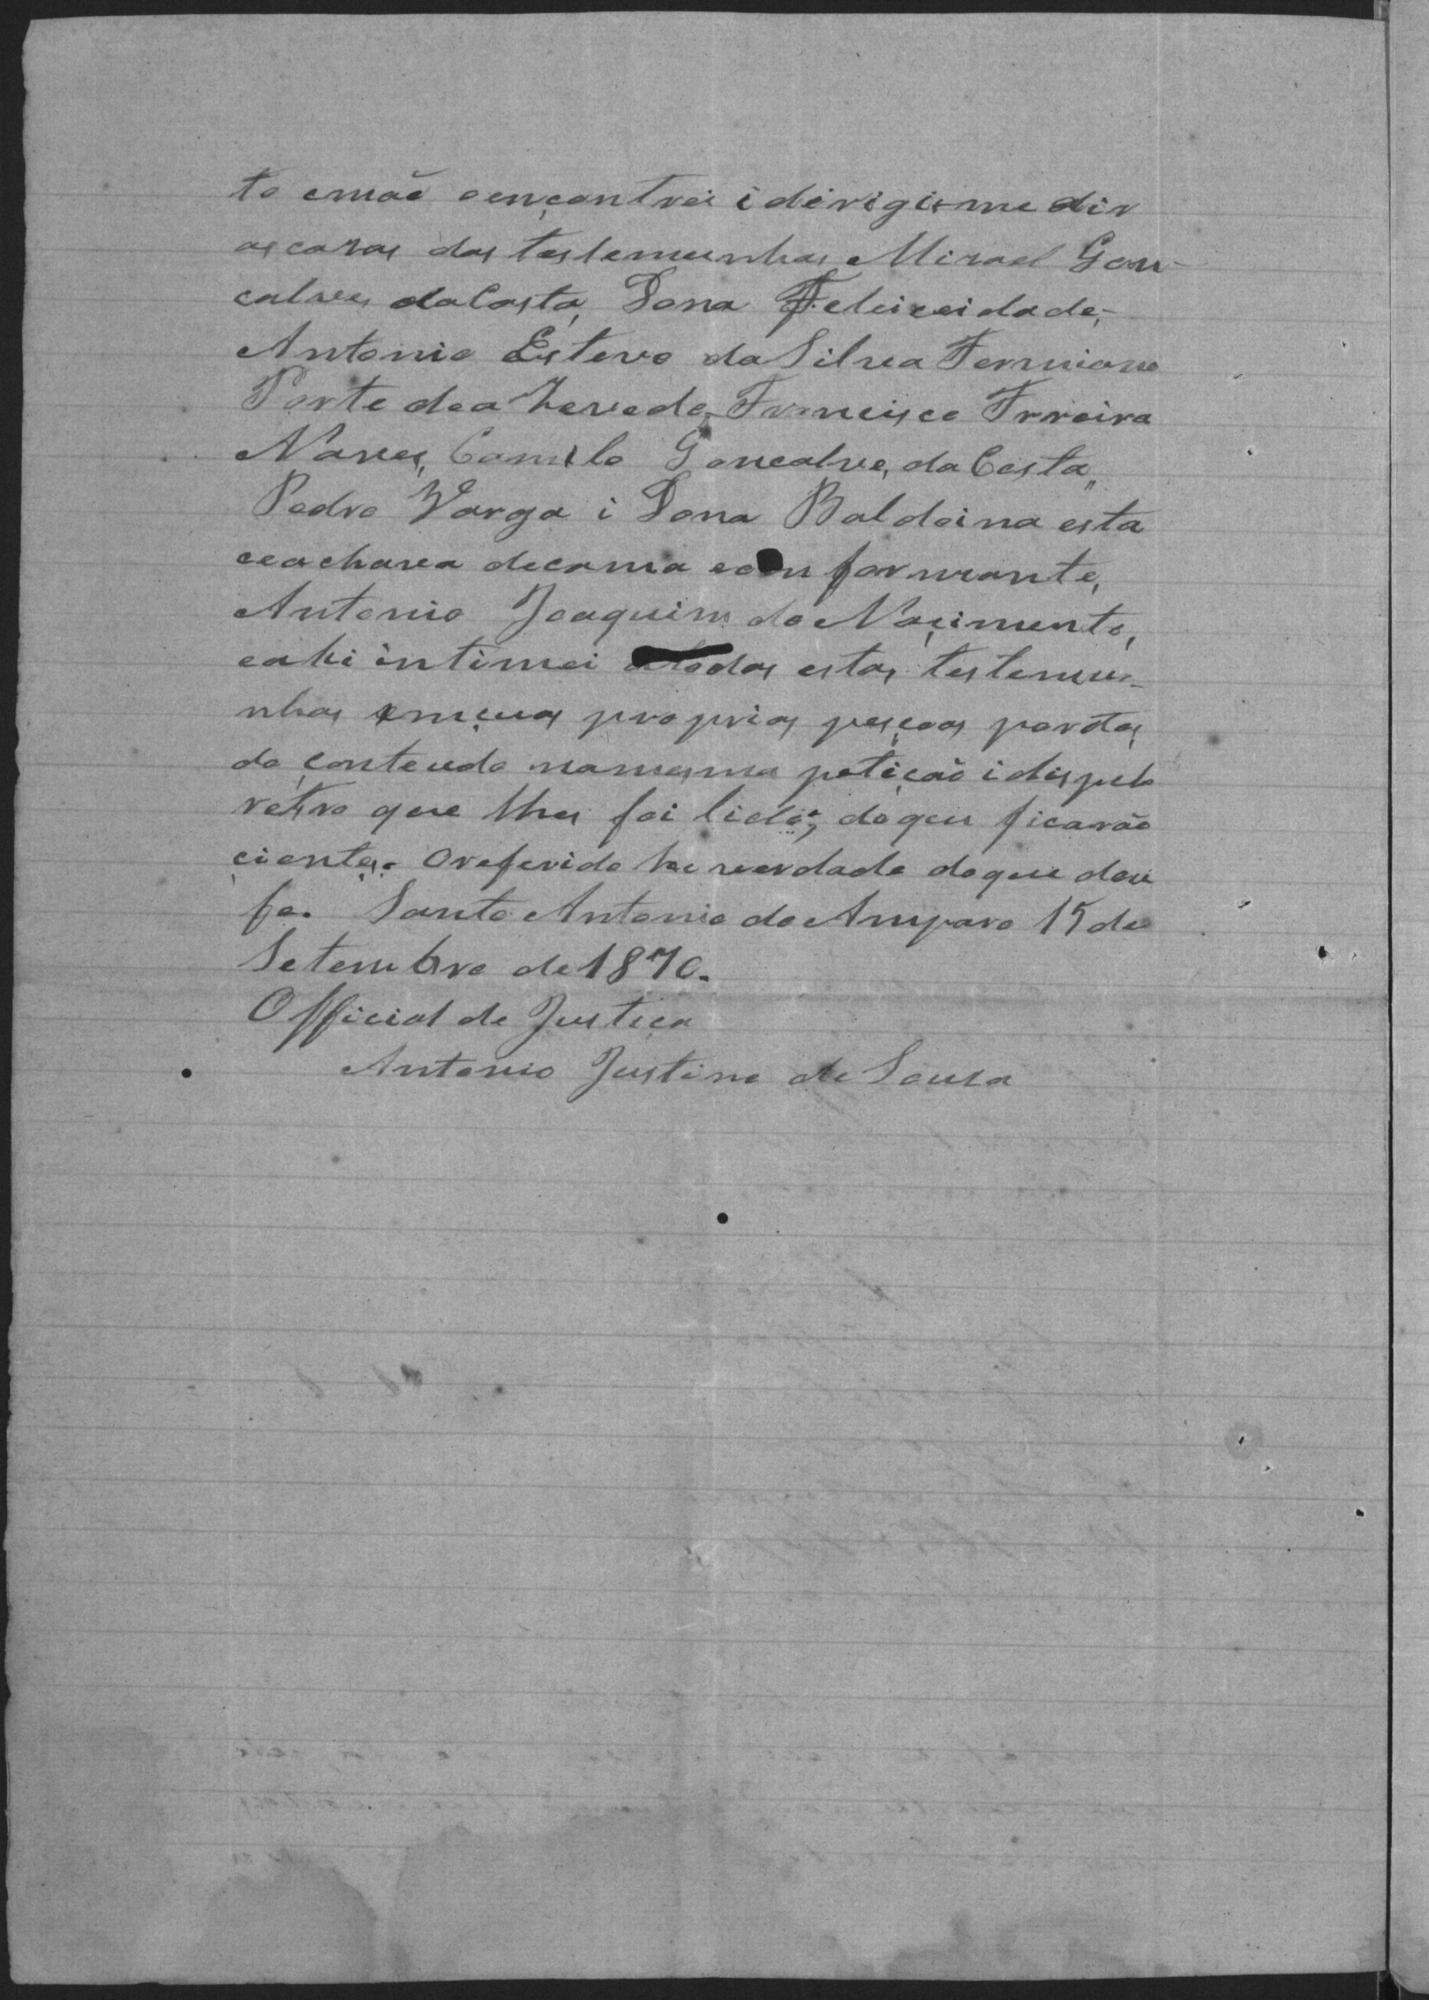 to enão oençontrei i dirigisme dir
ascazas das testemunhas Mizael Gon-
calves da Costa, Dona Feliceidade,
Antonio Estevo da Silva Fermiano
Porte dea Zevedo, Francisco Frreira
Naves, Camilo Goncalve, da Costa,,
Pedro Varga i Dona Baldoina esta
ceachava decama eo formante,
Antonio Joaquim do Naçimento,
eahi intimei atodas estas testemu-
nhas emçuas proprias peçoas portos
do çonteudo namesma petição i dispxo
retro que lhes foi lido, doque ficarão
çientes. Oreferido he verdade doque dou
fe. Santo Antonio do Amparo 15 de
Setembro de 1870.
Official de Justica
Antonio Justino de Souza